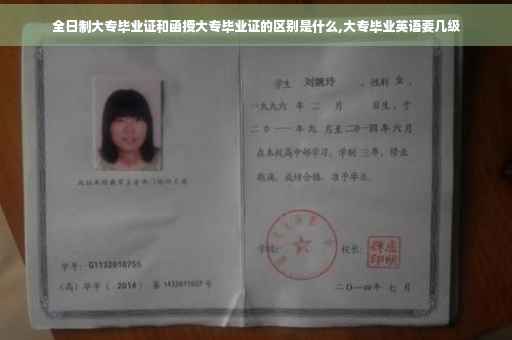 全日制大专毕业证和函授大专毕业证的区别是什么,大专毕业英语要几级
学生 刘婉玲 ,性别 女 ,
一九九六 年 二 月 日生,于
二〇一一年九 月至二〇一四年六月
在本校高中部学习,学制 三年,修业
期满,成绩合格,准予毕业。
学号: G1132010755
(高)毕字( 2014 )第 1432011027 号
学校:
校长:
二〇一四年 七 月